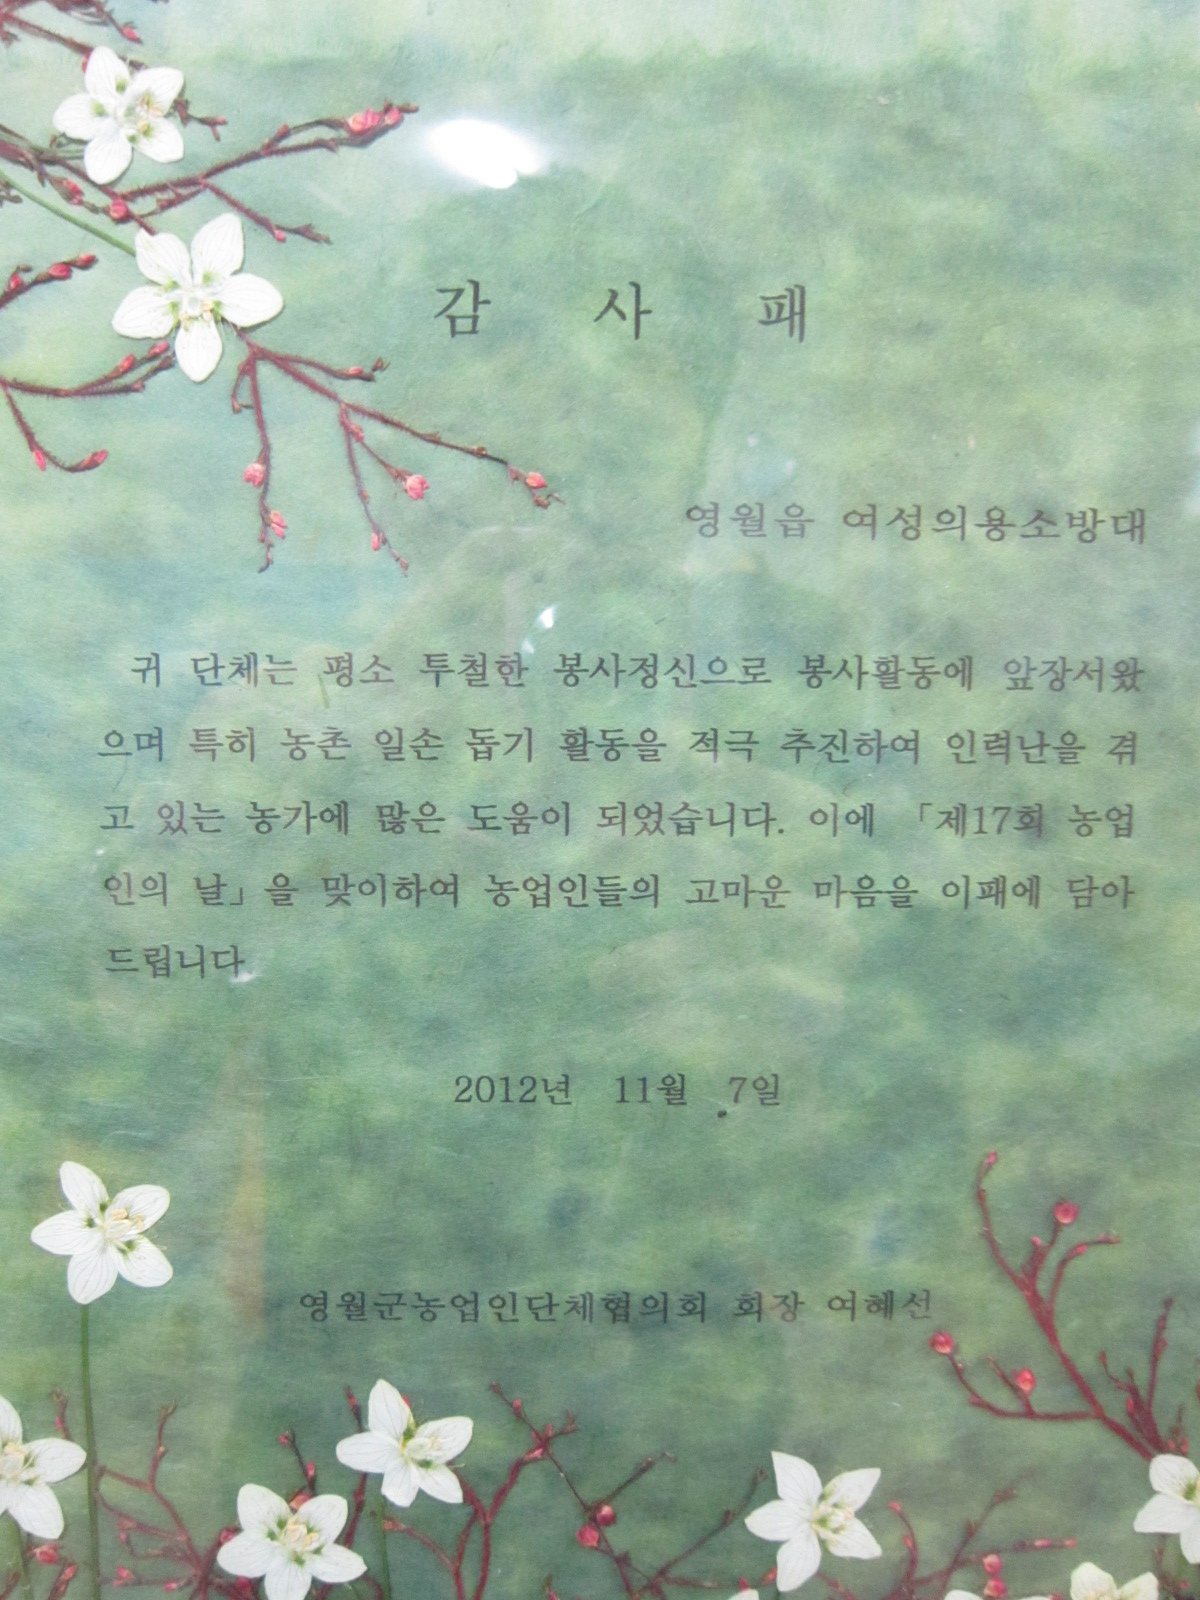 감 사 패
영월읍 여성의용소방대
귀 단체는 평소 투철한 봉사정신으로 봉사활동에 앞장서왔
으며 특히 농촌 일손 돕기 활동을 적극 추진하여 인력난을 겪
고 있는 농가에 많은 도움이 되었습니다. 이에 「제17회 농업
인의 날」을 맞이하여 농업인들의 고마운 마음을 이패에 담아
드립니다
2012년 11월 7일
영월군농업인단체협의회 회장 여혜선